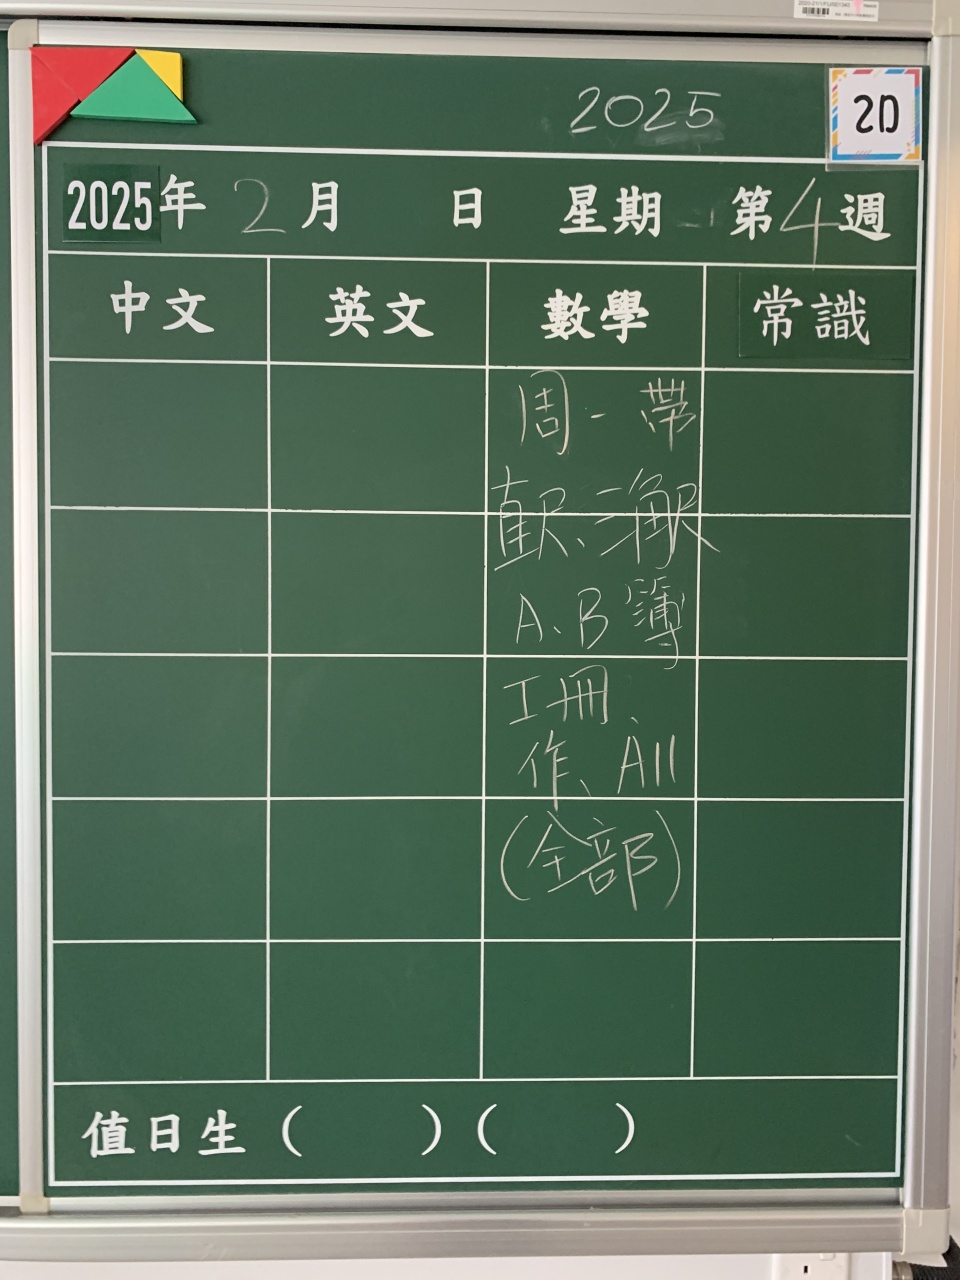 2025
2D
2025年 2月 日 星期 第4週
中文 英文 數學 常識
周一帶
直尺、三角尺
A、B簿
工冊、
作、All
(全部)
值日生 ( ) ( )